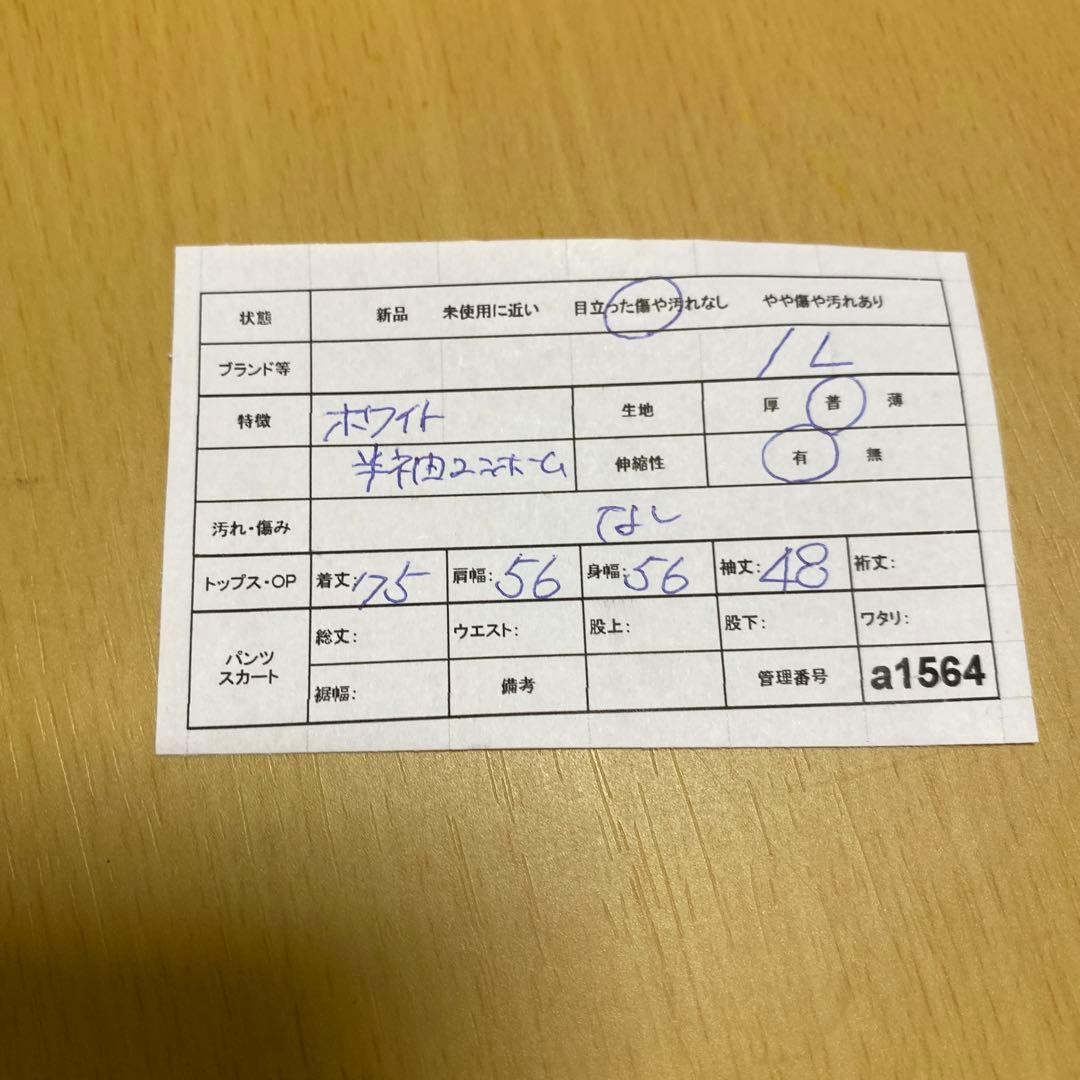 状態 新品 未使用に近い 目立った傷や汚れなし やや傷や汚れあり
ブランド等 / L
特徴 ホワイト 生地 厚 普 薄
半袖ユニホーム 伸縮性 有 無
汚れ・傷み なし
トップス・OP 着丈: 75 肩幅: 56 身幅: 56 袖丈: 48 裄丈:
パンツ スカート 総丈: ウエスト: 股上: 股下: ワタリ:
裾幅: 備考 管理番号 a1564